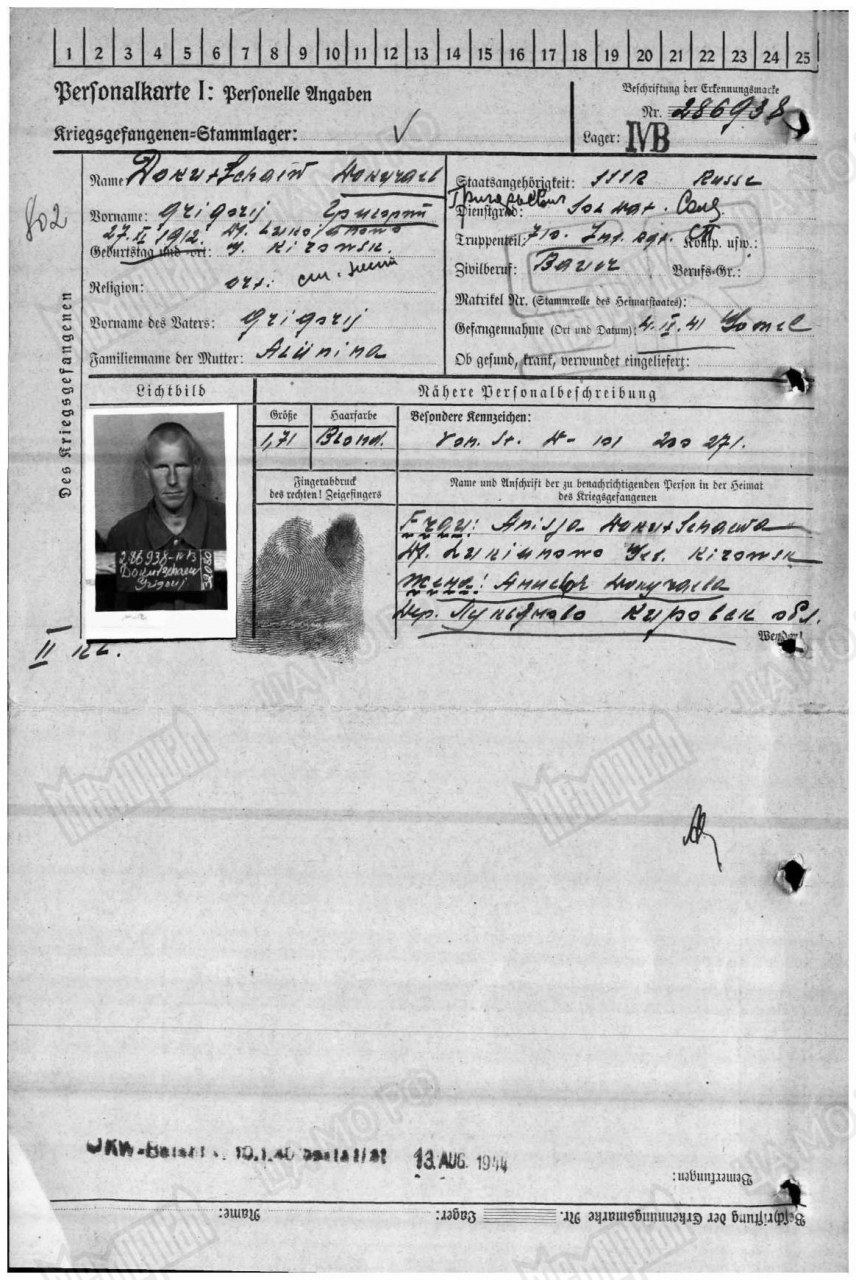 1 2 3 4 5 6 7 8 9 10 11 12 13 14 15 16 17 18 19 20 21 22 23 24 25
Personalkarte I: Personelle Angaben
Beschriftung der Erkennungsmarke
Nr. 286938
Kriegsgefangenen=Stammlager:
Lager: IVB
802
Des Kriegsgefangenen
Name: Dokutschaew Докучаев
Vorname: Grigorij Григорий
27. II 1912. Df. Lukianowo
Geburtstag und =ort: g. Kirowsk.
Religion: ort.
Vorname des Vaters: Grigorij
Familienname der Mutter: Alünina
Staatsangehörigkeit: SSSR Russe
Dienstgrad: Soldat.
Truppenteil: Komp. usw.:
Zivilberuf: Bauer Berufs=Gr.:
Matrikel Nr. (Stammrolle des Heimatstaates):
Gefangennahme (Ort und Datum): Gomel
Ob gesund, krank, verwundet eingeliefert:
Lichtbild
Nähere Personalbeschreibung
Größe
1,71
Haarfarbe
Blond.
Besondere Kennzeichen:
Fingerabdruck
des rechten! Zeigefingers
Name und Anschrift der zu benachrichtigenden Person in der Heimat
des Kriegsgefangenen
Frau: Anisja Dokutschaewa
Df. Lukianowo Kirowsk
Жена: Докучаева
Дер. Лукьяново Киров обл.
Wenden!
286938-IVB
Dokutschaew
Grigorij
II
13. AUG. 1944
Bemerkungen:
Beschriftung der Erkennungsmarke Nr. Lager: Name:
Мемориал
ЦАМО РФ